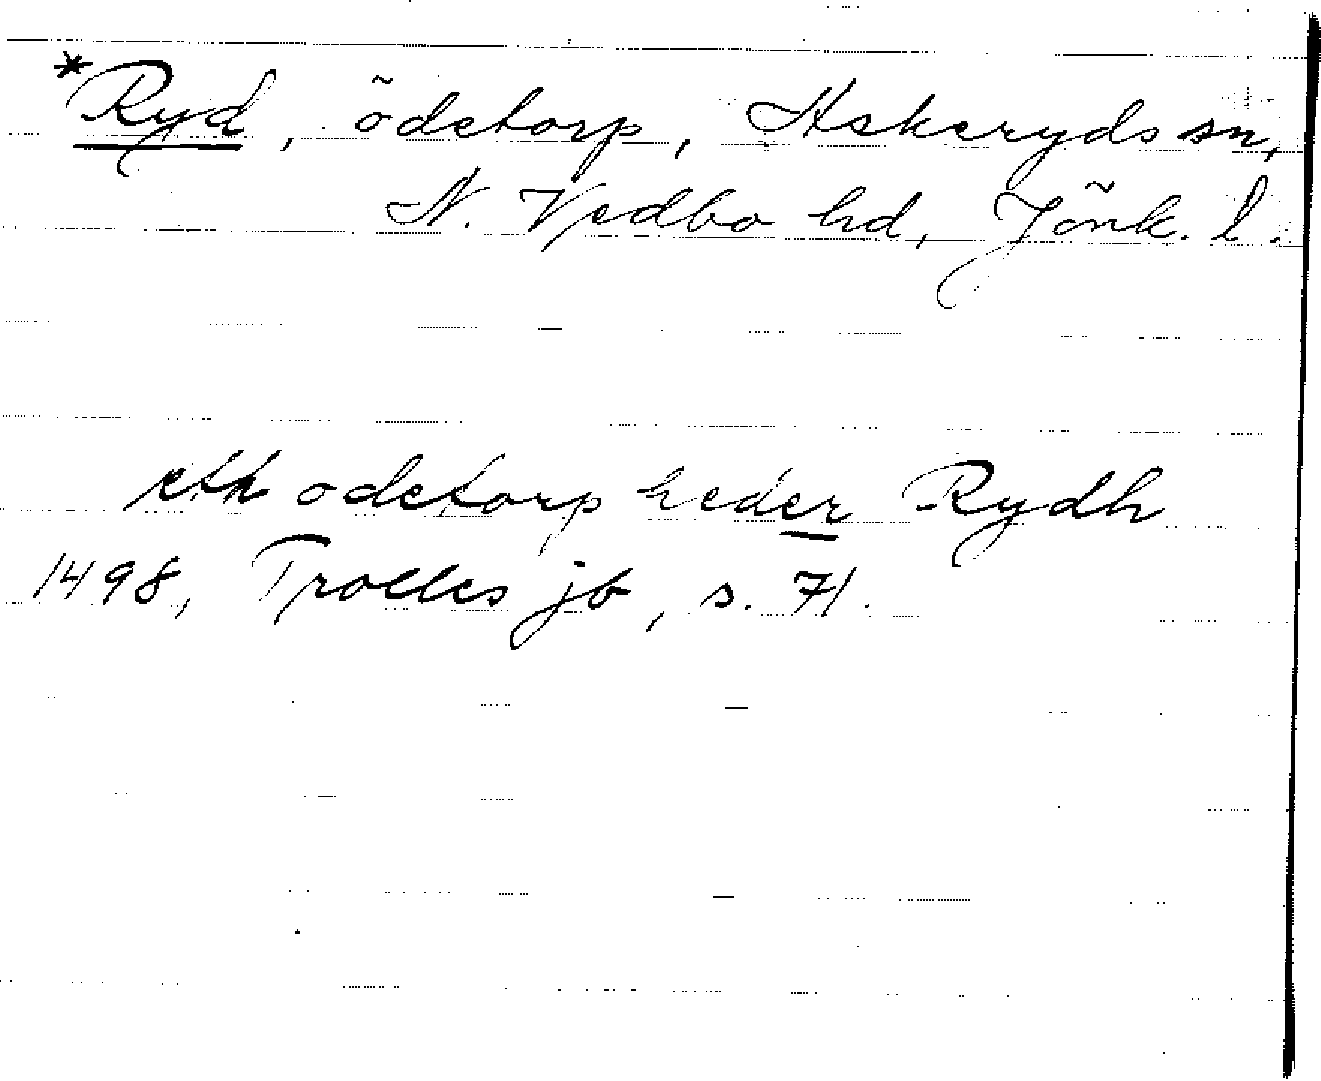 *Ryd, ödetorp, Askeryds sn,
N. Vedbo hd, Jönk. l.
eth odetorp heder Rydh
1498, Trolles jb, s. 71.